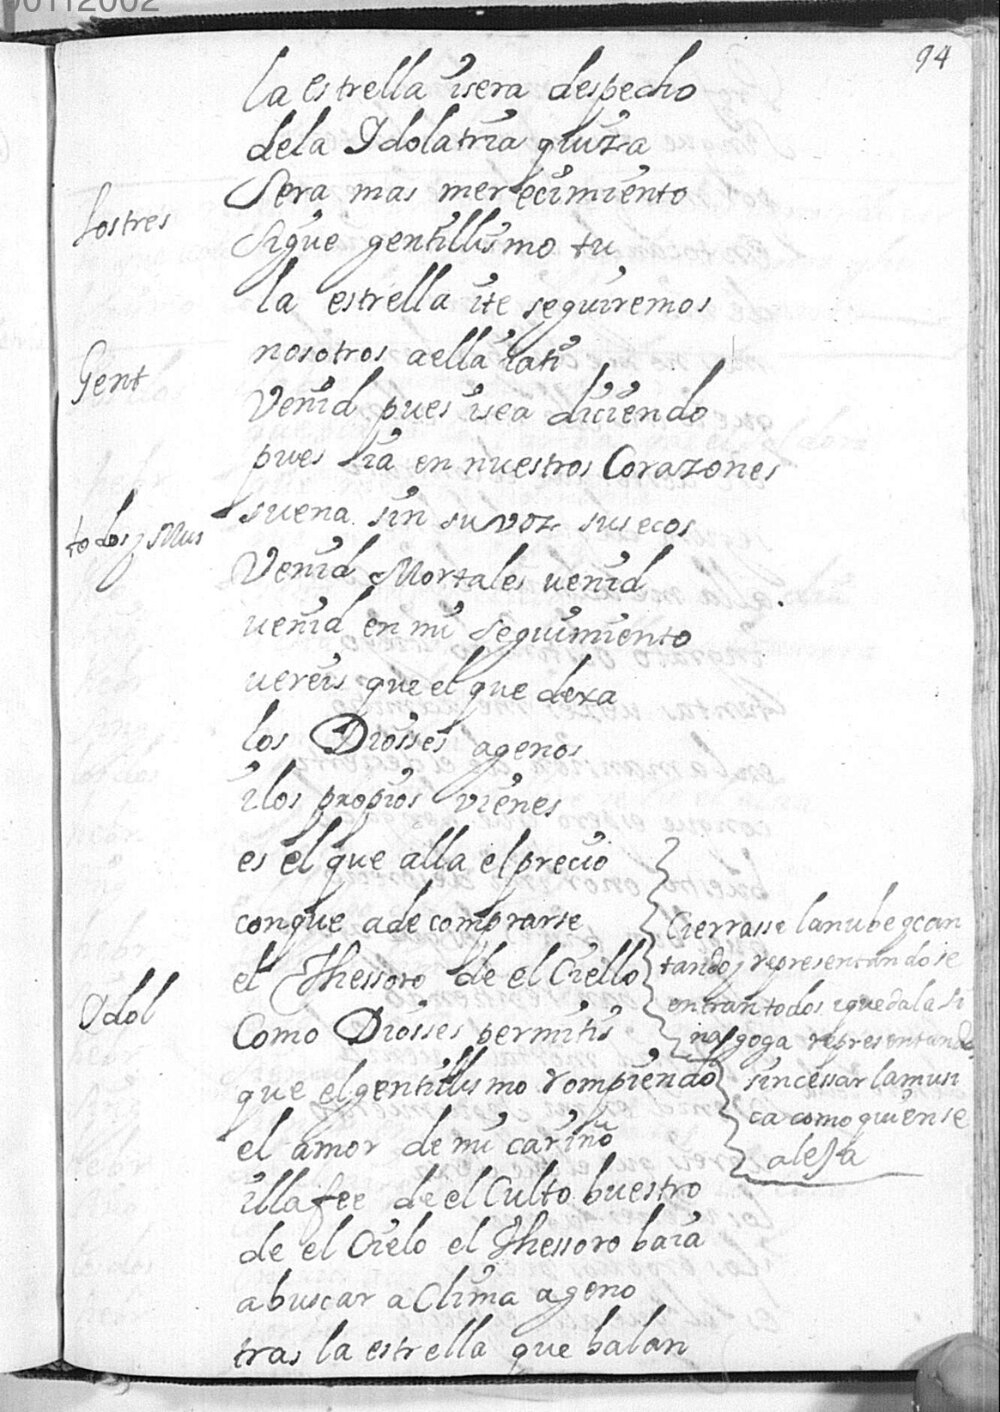 00112002
94
la estrella isera despecho
dela Idolatria quiza
Sera mas merecimiento
Los tres
Sigue gentilissimo tu
la estrella ite seguiremos
nosotros aella iati
Gent
Venid pues isea diciendo
pues ia en nuestros Corazones
suena sin su voz sus ecos
todos y Mus
Venid Mortales uenid
uenid en mi seguimiento
uereis que el que dexa
los Diosses agenos
ilos propios vienes
es el que alla el precio
conque a de comprarse
el Thessoro de el Ciello
Cierrasse la nube y can
tando y representando se
entran todos i queda la Si
nagoga representando
sin cessar la musi
ca como quien se
alexa
Idol
Como Diosses permitis
que el gentilismo rompiendo
el amor de mi cariño
illa fee de el Culto buestro
de el Cielo el Thessoro baia
a buscar a Clima ageno
tras la estrella que balan